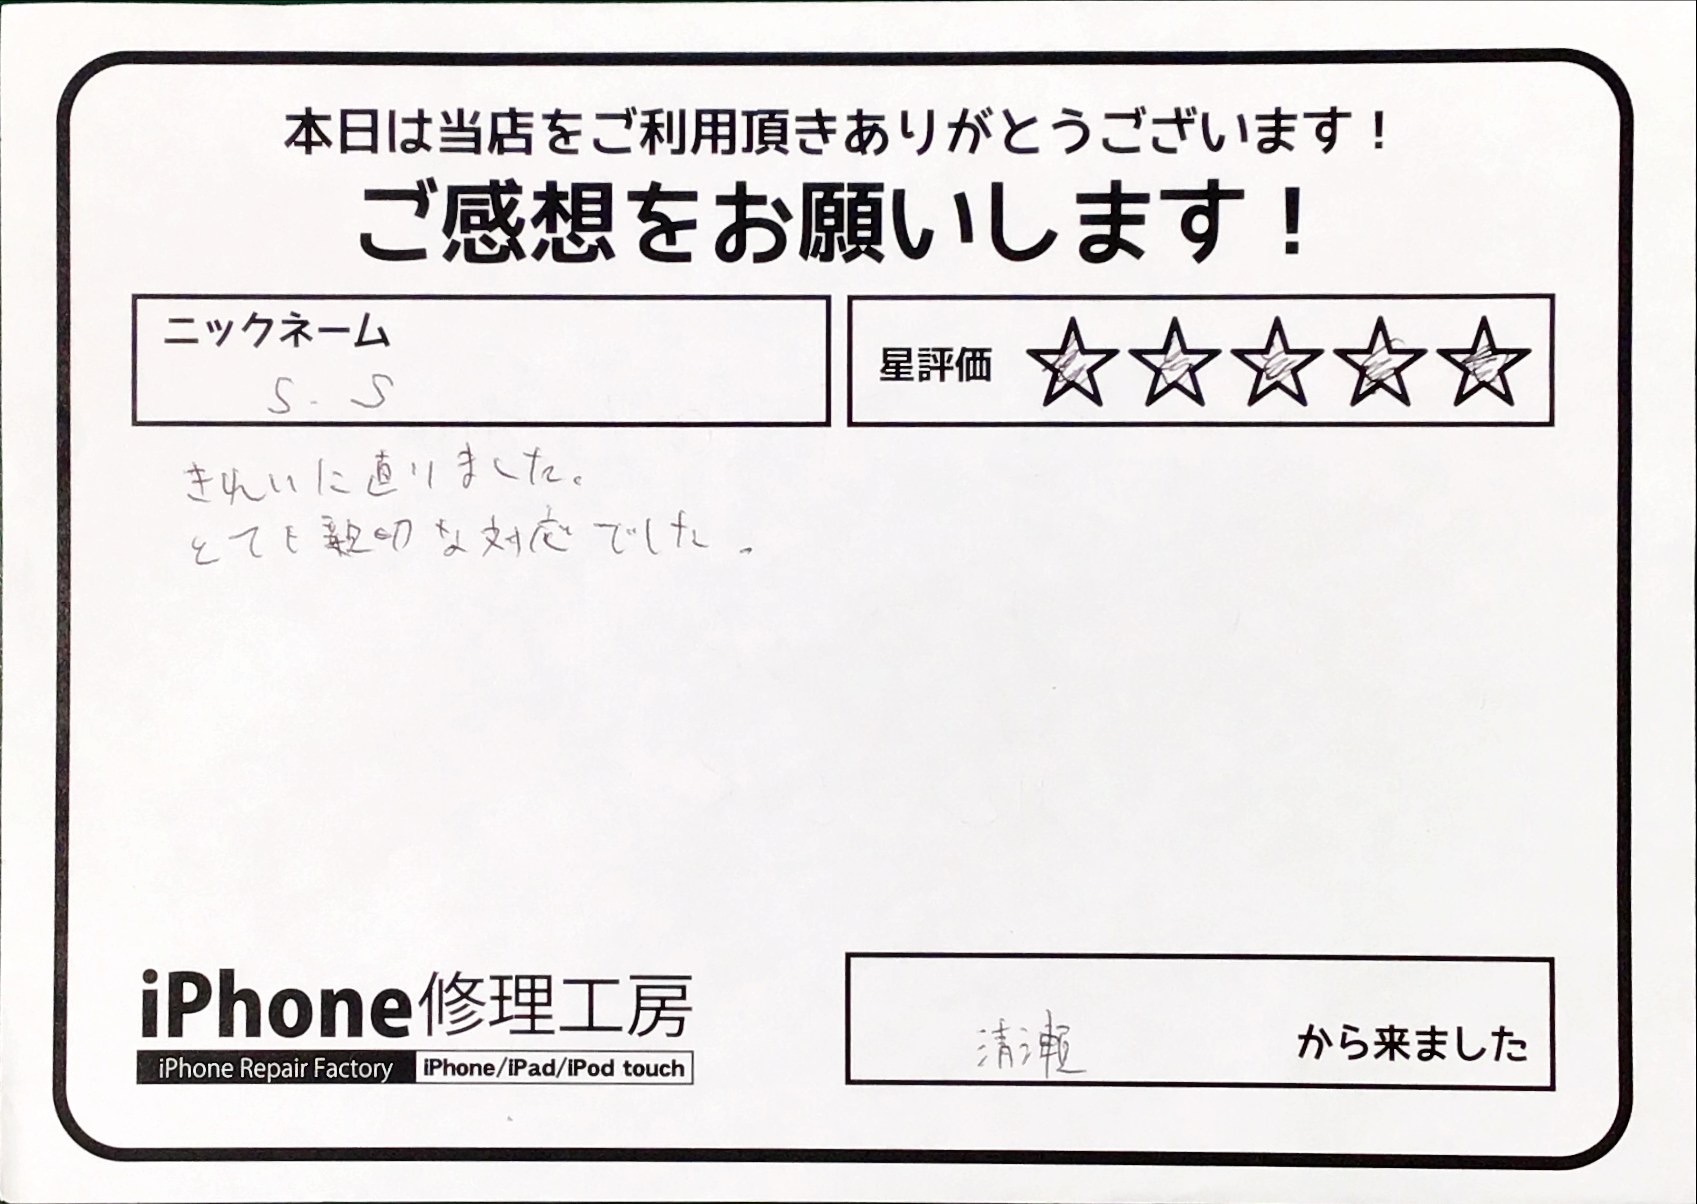 本日は当店をご利用頂きありがとうございます！
ご感想をお願いします！
ニックネーム
S.S
星評価 ☆☆☆☆☆
きれいに直りました。
とても親切な対応でした。
iPhone修理工房
iPhone Repair Factory iPhone/iPad/iPod touch
清瀬 から来ました